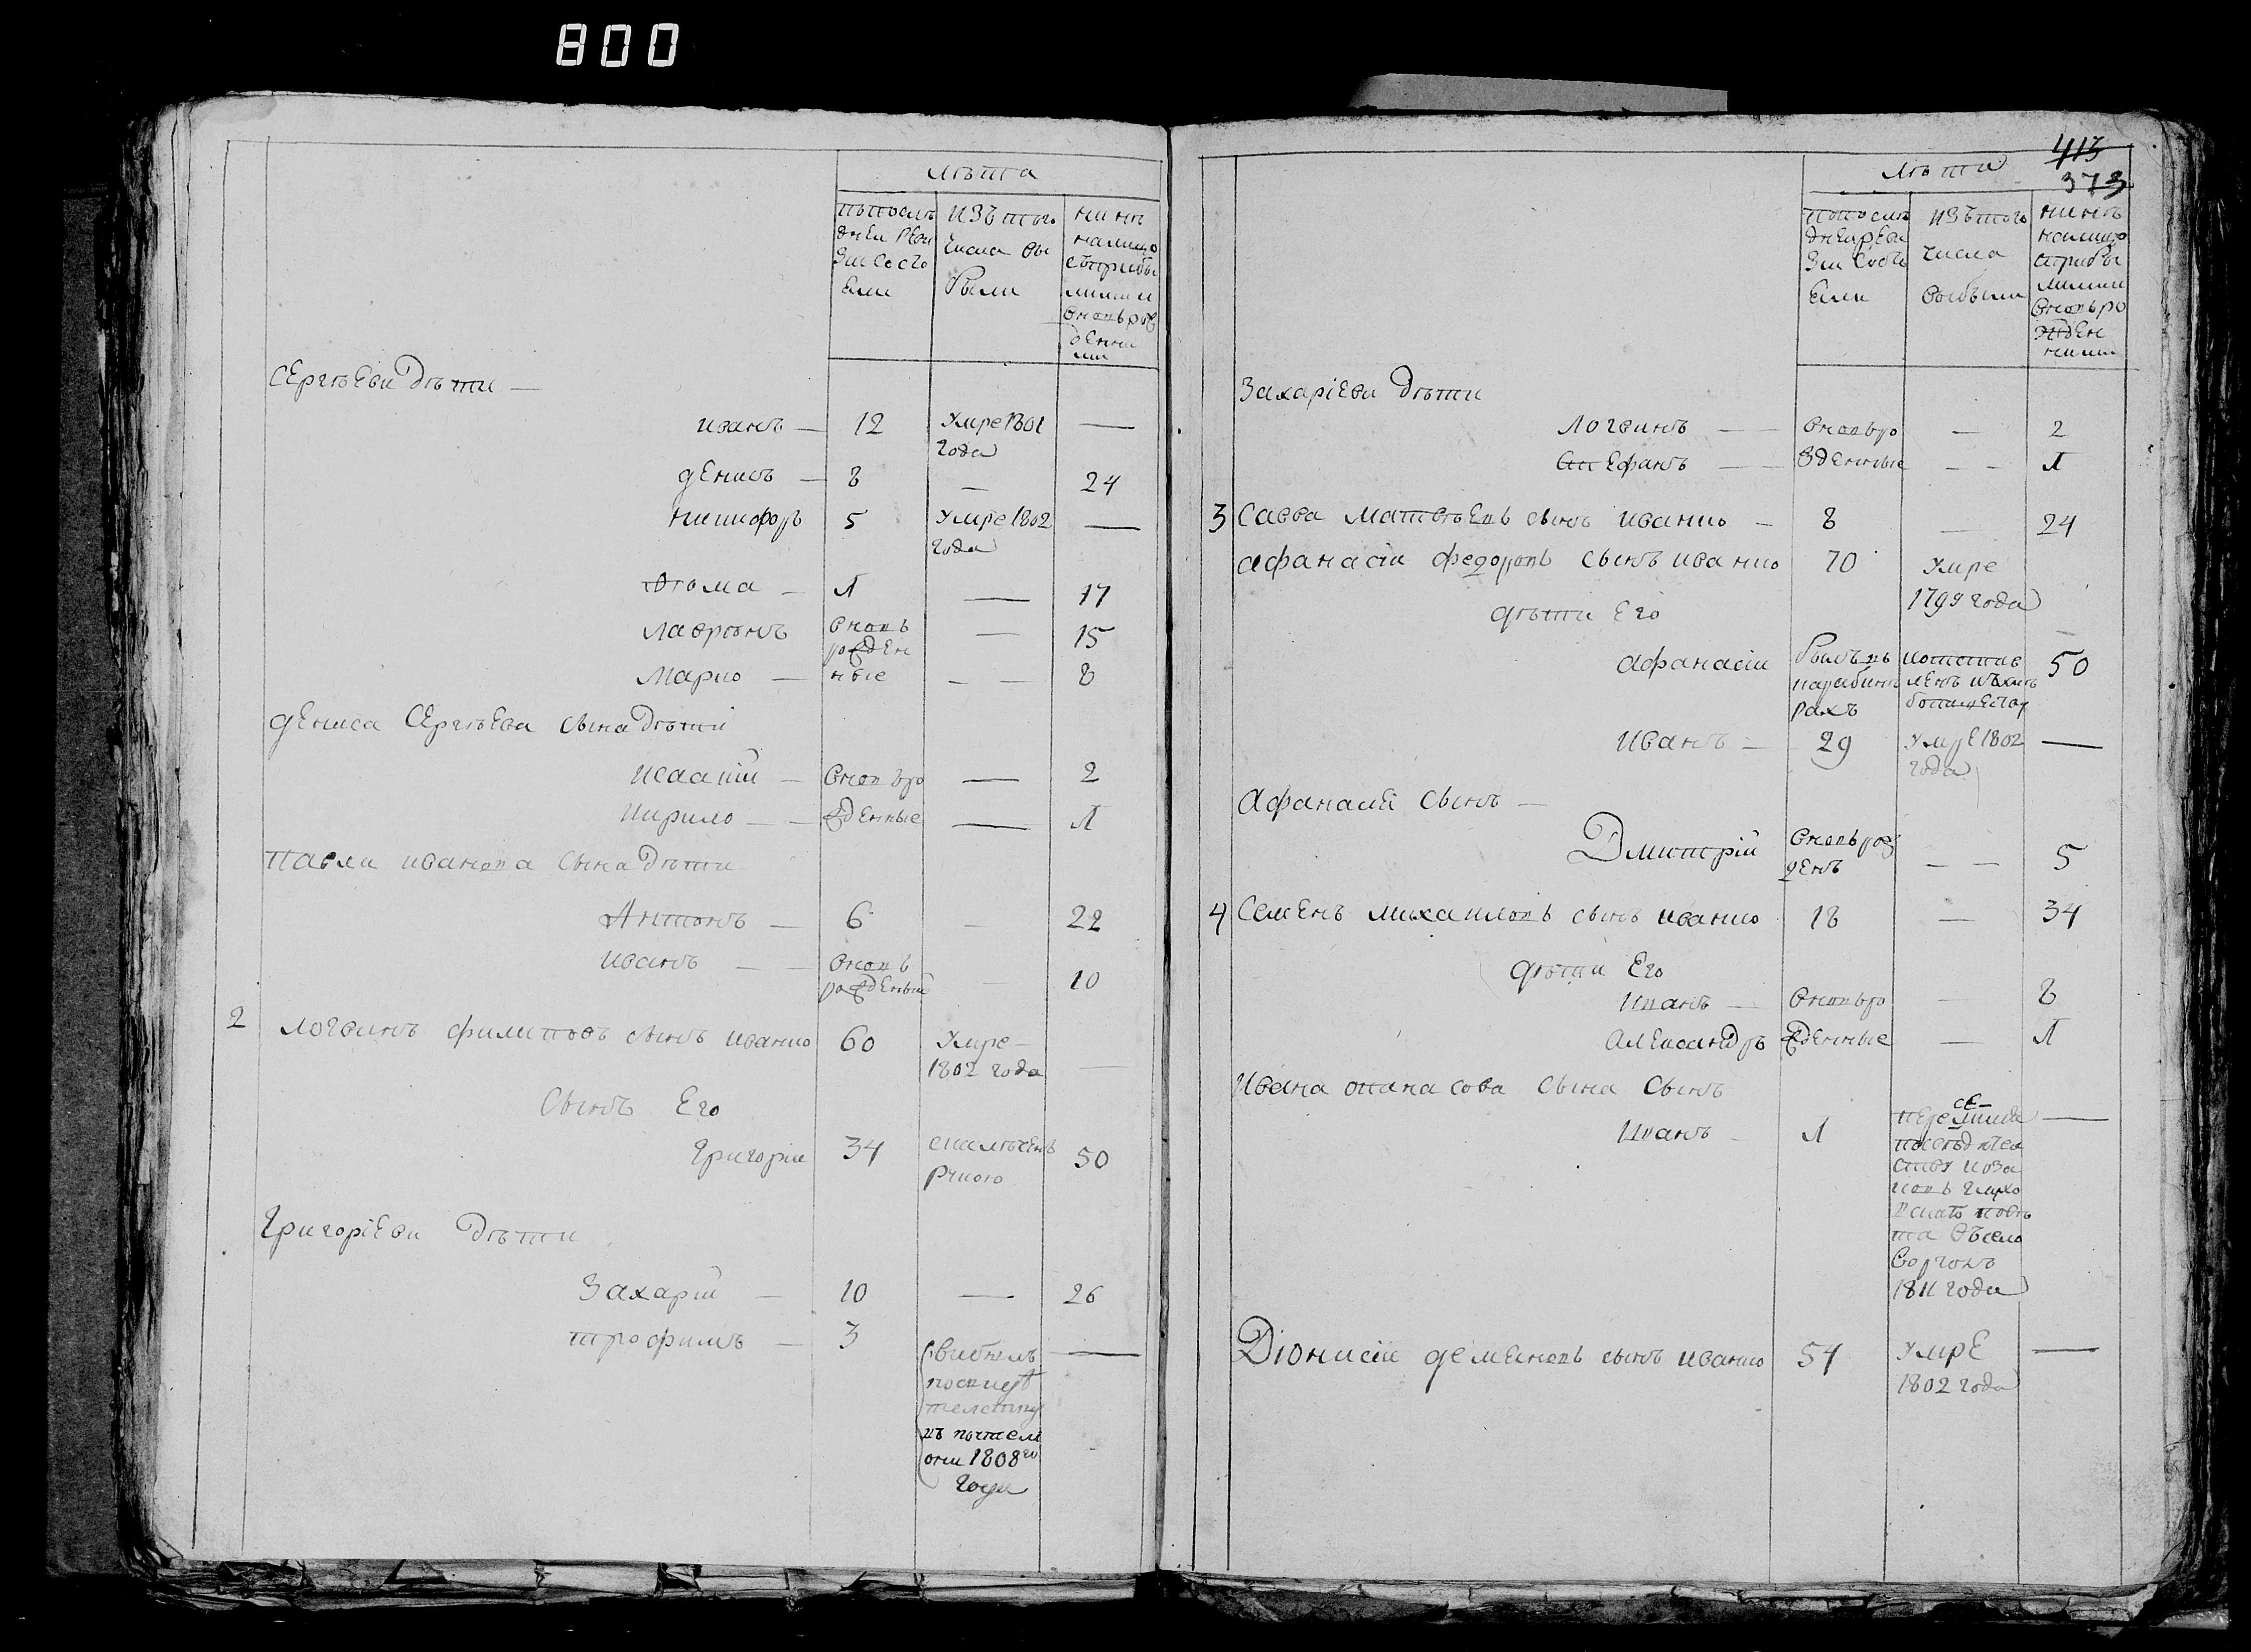 800
лѣта
попослѣ
дней реви
зіи состо
яли
изъ того
числа вы
были
нынѣ
налицо
съприбы
лыми и
вновьрож
денны
ми
Сергѣеви дѣти —
иванъ — 12 умре 1801 —
года
денисъ — 8 — 24
никифоръ 5 умре 1802 —
года
Фома — 1 — 17
лаврѣнъ вновь — 15
рожден
марко — ные — — 8
дениса Сергѣева сына дѣти
исаакій — вновьро — 2
кирило — — жденные — 1
павла иванова сына дѣти
Антонъ — 6 — 22
иванъ — — вновь
рожденый — 10
2 логвинъ филиповъ сынъ ивашко 60 умре —
1802 года —
сынъ Его
григорій 34 50
григоріеви дѣти
Захарій — 10 — 26
трофимъ — 3 —
1808го
года
413
373
лѣта
попослѣ
дней реви
зіи состо
яли
изъ того
числа
выбыли
нынѣ
налицо
съприбы
лыми и
вновьро
жден
ными
Захаріеви дѣти
Логвинъ — — вновьро — 2
Стефанъ — — жденные — — 1
3 Савва матвѣевъ сынъ ивашко — 8 — 24
афанасій федоровъ сынъ ивашко 70 умре
1799 года
дѣти Его —
афанасій былъ въ 50
рахъ
Иванъ — 29 умрЕ 1802 —
года
Афанасій сынъ —
Дмитрій вновьрож
денъ — — 5
4 Семенъ михаиловъ сынъ ивашко 18 — 34
дѣти Его
иванъ — вновьро — 8
александръ жденные — 1
Ивана опанасова сына сынъ
иванъ — 1 —
1811 года
Діонисій деменовъ сынъ ивашко 54 умрЕ —
1802 года